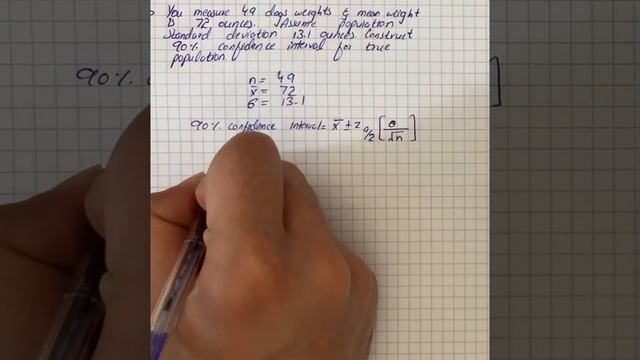 You measure 49 dogs weights & mean weight
is 72 ounces. Assume population
Standard deviation 13.1 ounces. Construct
90% confidence interval for true
population.
n = 49
x̄ = 72
σ = 13.1
90% confidence interval = x̄ ± z α/2 [σ/√n]